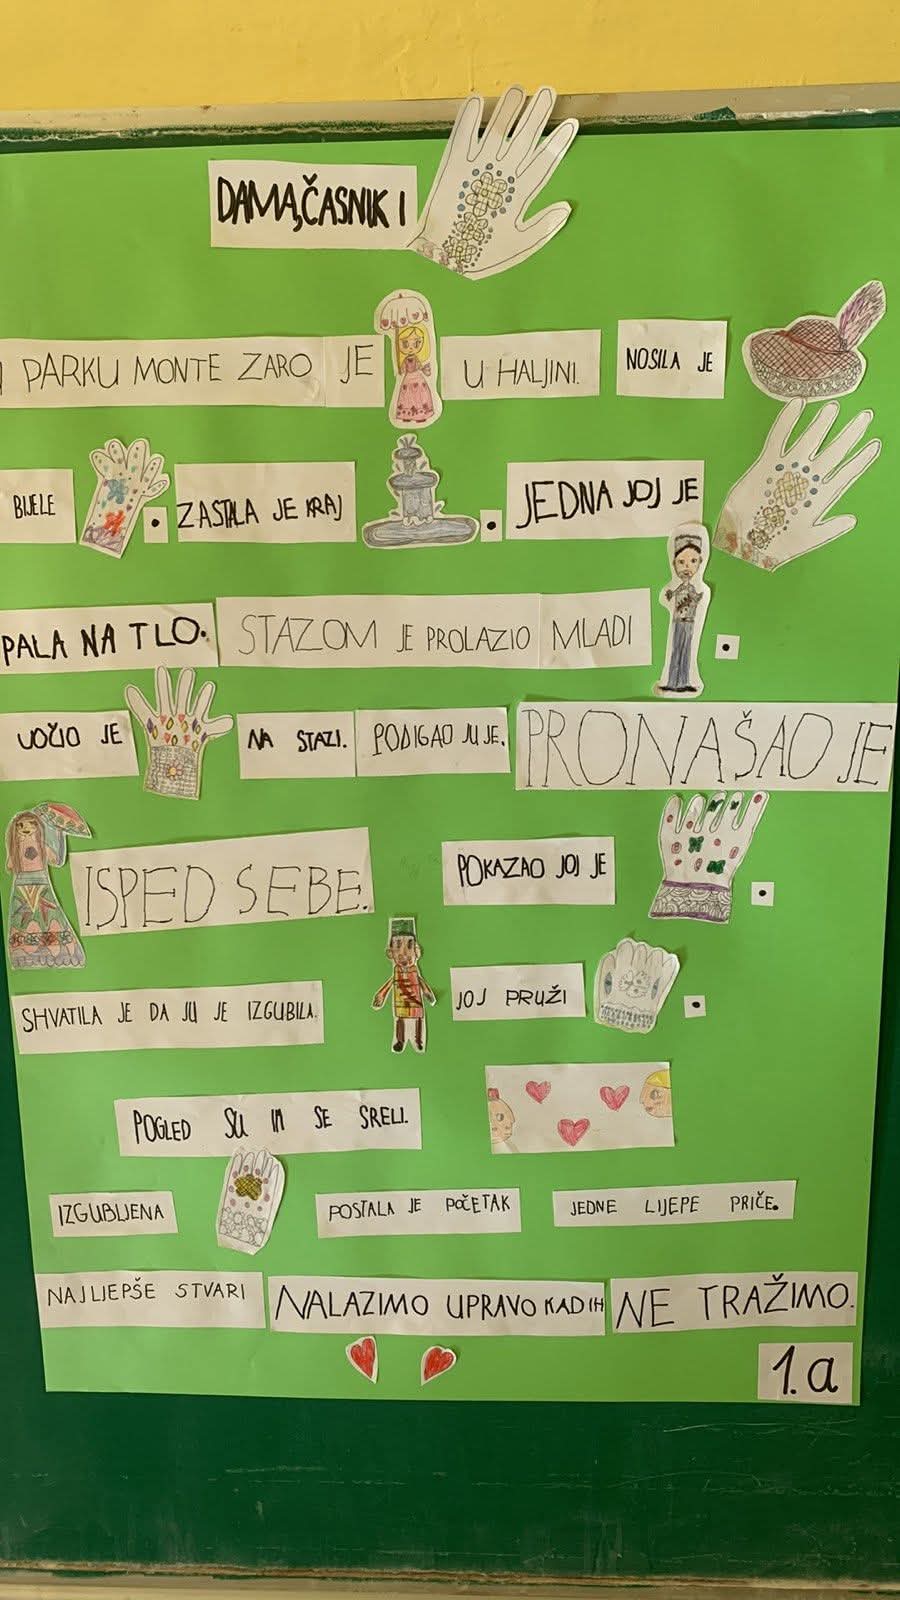 DAMA, ČASNIK I
PARKU MONTE ZARO JE U HALJINI. NOSILA JE
BIJELE . ZASTALA JE KRAJ . JEDNA JOJ JE
PALA NA TLO. STAZOM JE PROLAZIO MLADI .
UOČIO JE NA STAZI. PODIGAO JU JE. PRONAŠAO JE
ISPED SEBE. POKAZAO JOJ JE .
SHVATILA JE DA JU JE IZGUBILA. JOJ PRUŽI .
POGLED SU IM SE SRELI.
IZGUBLJENA POSTALA JE POČETAK JEDNE LIJEPE PRIČE.
NAJLJEPŠE STVARI NALAZIMO UPRAVO KAD IH NE TRAŽIMO.
1.a